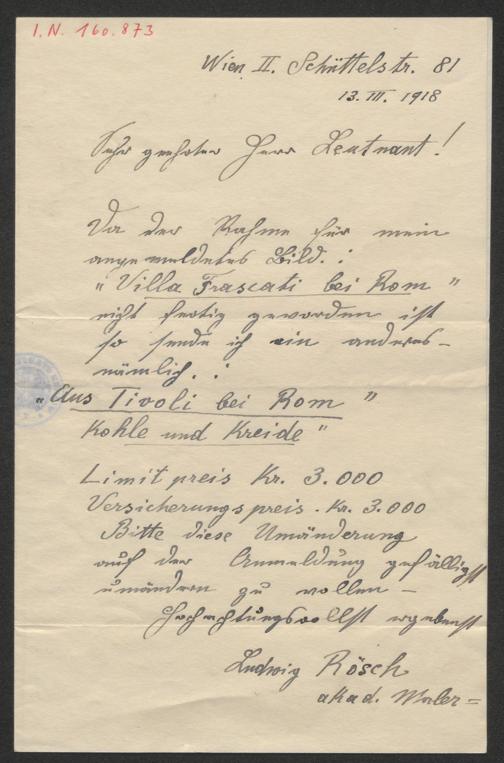 I.N. 160.873
Wien II. Schüttelstr. 81
13. III. 1918
Sehr geehrter Herr Leutnant!
Da der Rahme für mein
angemeldetes Bild.:
"Villa Frascati bei Rom"
nicht fertig geworden ist
so sende ich ein anderes-
nämlich.:
"Aus Tivoli bei Rom"
Kohle und Kreide"
Limit preis Kr. 3.000
Versicherungspreis. Kr. 3.000
Bitte diese Umänderung
auf der Anmeldung gefälligst
umändern zu wollen -
Hochachtungsvollst ergebenst
Ludwig Rösch
akad. Maler=